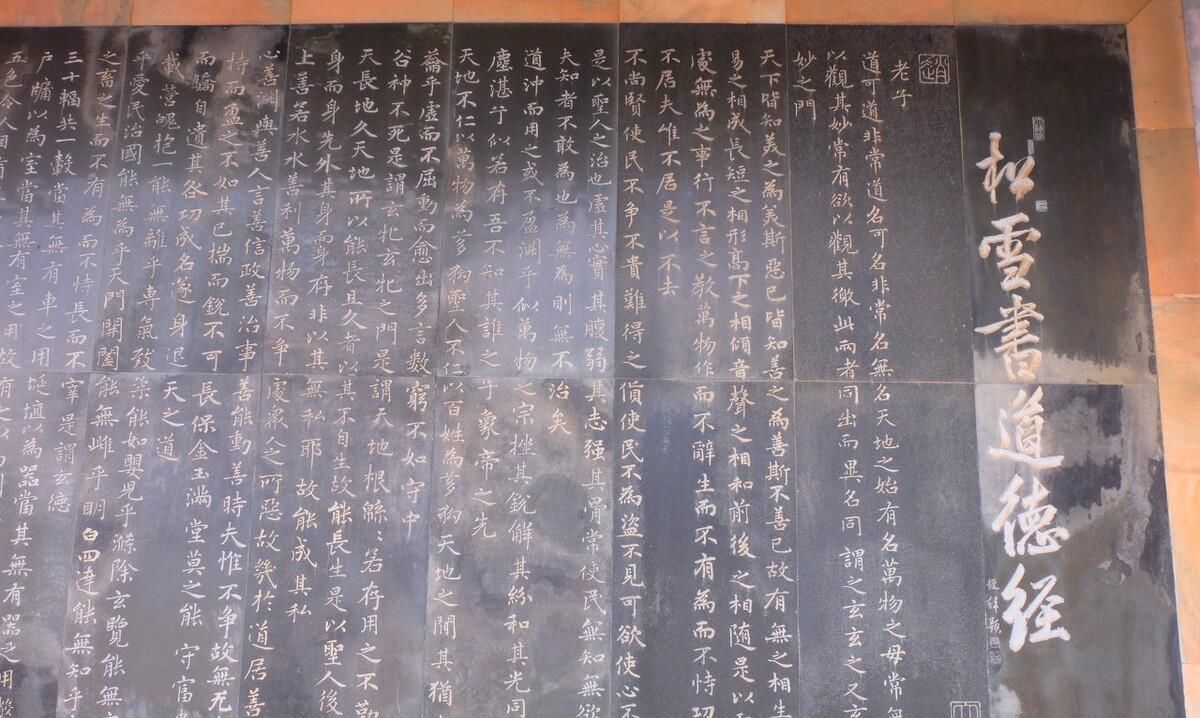 松雪書道德经
趙
老子
道可道非常道名可名非常名無名天地之始有名萬物之母常無
以觀其妙常有欲以觀其徼此兩者同出而異名同謂之玄玄之又玄
妙之門
天下皆知美之為美斯惡已皆知善之為善斯不善已故有無之相生
易之相成長短之相形高下之相傾音聲之相和前後之相随是以
處無為之事行不言之教萬物作而不辭生而不有為而不恃功
不居夫惟不居是以不去
不尚賢使民不爭不貴難得之貨使民不為盗不見可欲使心不
是以聖人之治也虛其心實其腹弱其志强其骨常使民無知無欲
夫知者不敢為也為無為則無不治矣
道沖而用之或不盈淵乎似萬物之宗挫其銳解其紛和其光同
塵湛兮似若存吾不知其誰之子象帝之先
天地不仁以萬物為芻狗聖人不仁以百姓為芻狗天地之閒其猶
籥乎虛而不屈動而愈出多言數窮不如守中
谷神不死是謂玄牝玄牝之門是謂天地根緜〻若存用之不勤
天長地久天地所以能長且久者以其不自生故能長生是以聖人後
身而身先外其身而身存非以其無私耶故能成其私
上善若水水善利萬物而不爭處衆人之所惡故幾於道居善
心善淵與善人言善信政善治事善能動善時夫惟不爭故無尤
持而盈之不如其已揣而銳不可長保金玉滿堂莫之能守富
而驕自遺其咎功成名遂身退天之道
載營魄抱一能無離乎專氣致柔能如嬰兒乎滌除玄覽能無
乎愛民治國能無為乎天門開闔能無雌乎明白四達能無知乎
之畜之生而不有為而不恃長而不宰是謂玄德
三十輻共一轂當其無有車之用埏埴以為器當其無有器之用
戶牖以為室當其無有室之用故有之以
五色令人目